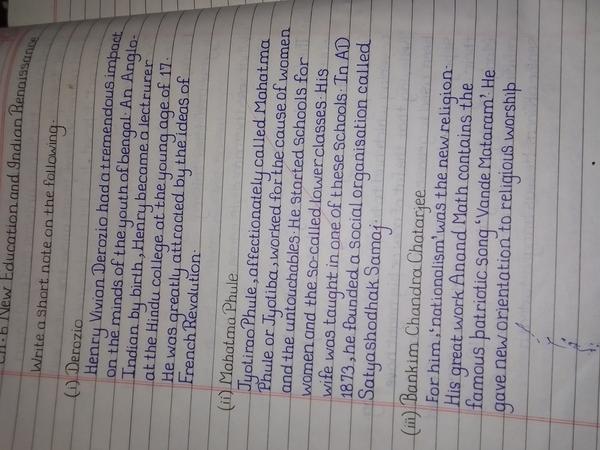 Ch.6 New Education and Indian Renaissance
Write a short note on the following.
(i) Derozio
Henry Vivian Derozio had a tremendous impact
on the minds of the youth of bengal. An Anglo-
Indian by birth, Henry became a lectrurer
at the Hindu college at the young age of 17.
He was greatly attracted by the ideas of
French Revolution.
(ii) Mahatma Phule
Jyotiraa Phule, affectionately called Mahatma
Phule or Jyotiba, worked for the cause of women
and the untouchables. He started schools for
women and the so-called lower classes. His
wife was taught in one of these schools. In AD
1873, he founded a social organisation called
Satyashodhak Samaj.
(iii) Bankim Chandra Chatarjee
For him, 'nationalism' was the new religion.
His great work Anand Math contains the
famous patriotic song 'Vande Mataram'. He
gave new orientation to religious worship